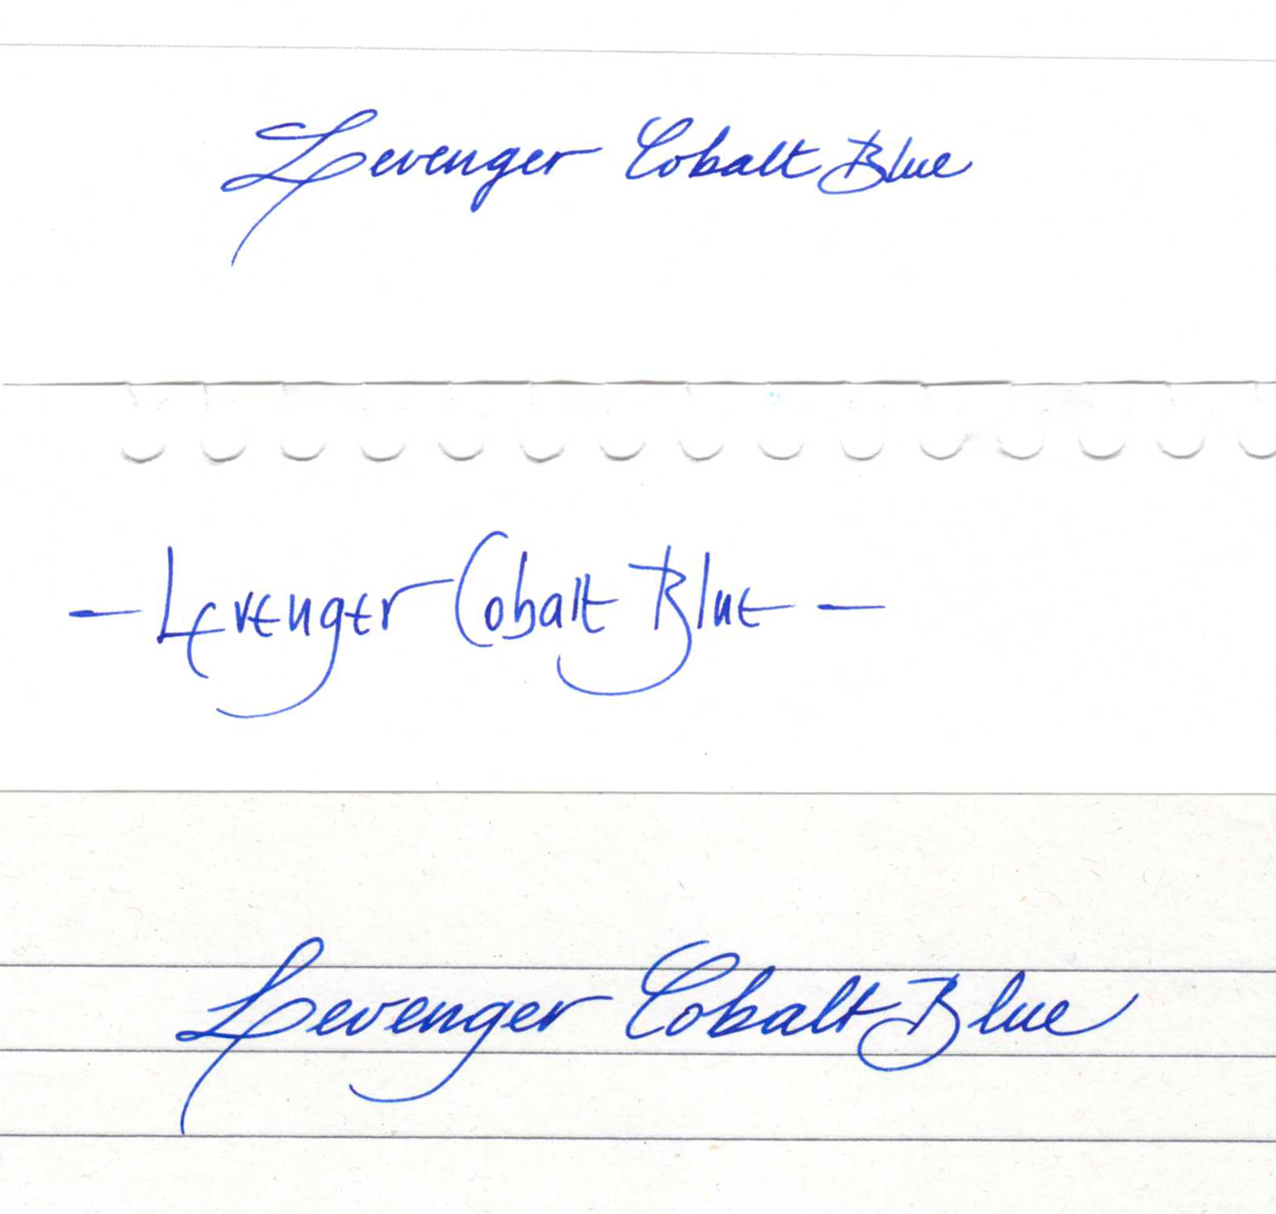 Levenger Cobalt Blue
- Levenger Cobalt Blue -
Levenger Cobalt Blue